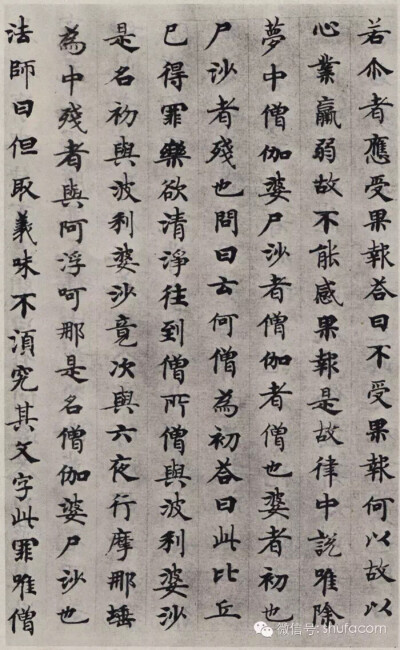 若尒者應受果報荅曰不受果報何以故以
心業羸弱故不能感果報是故律中說唯除
夢中僧伽婆尸沙者僧伽者僧也婆者初也
尸沙者殘也問曰云何僧為初荅曰此比丘
已得罪樂欲清淨往到僧所僧與波利婆沙
是名初與波利婆沙竟次與六夜行摩那埵
為中殘者與阿浮呵那是名僧伽婆尸沙也
法師曰但取義味不湏究其文字此罪唯僧
微信号: shufacom